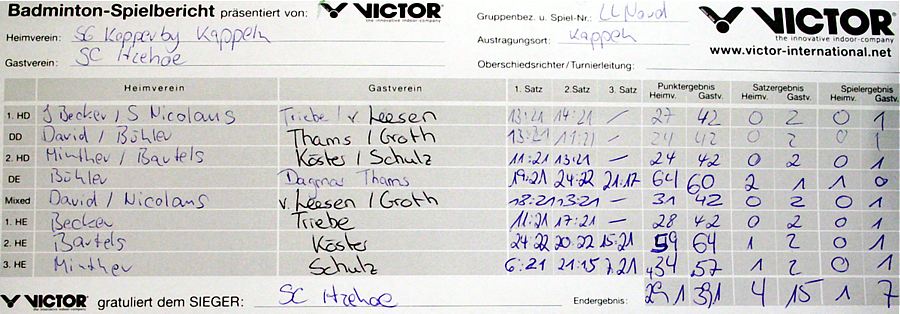 Badminton-Spielbericht präsentiert von: VICTOR the innovative indoor-company
Gruppenbez. u. Spiel-Nr.: LL Nord
VICTOR the innovative indoor-company
www.victor-international.net
Heimverein: SG Kopperby Kappeln
Austragungsort: Kappeln
Gastverein: SC Itzehoe
Oberschiedsrichter/Turnierleitung:
Heimverein Gastverein 1. Satz 2. Satz 3. Satz Punktergebnis Satzergebnis Spielergebnis
Heimv. Gastv. Heimv. Gastv. Heimv. Gastv.
1. HD J Becker / S Nicolaus Triebe / v Leesen 13:21 14:21 — 27 42 0 2 0 1
DD David / Bühler Thams / Groth 24 42 0 2 0 1
2. HD Minther / Bartels Köster / Schulz 11:21 13:21 — 24 42 0 2 0 1
DE Bühler Dagmar Thams 19:21 24:22 21:17 64 60 2 1 1 0
Mixed David / Nicolaus v. Leesen / Groth 18:21 13:21 — 31 42 0 2 0 1
1. HE Becker Triebe 11:21 17:21 — 28 42 0 2 0 1
2. HE Bartels Köster 24:22 20:22 15:21 59 64 1 2 0 1
3. HE Minther Schulz 6:21 21:15 7:21 34 57 1 2 0 1
VICTOR the innovative indoor-company gratuliert dem SIEGER: SC Itzehoe Endergebnis: 291 391 4 15 1 7